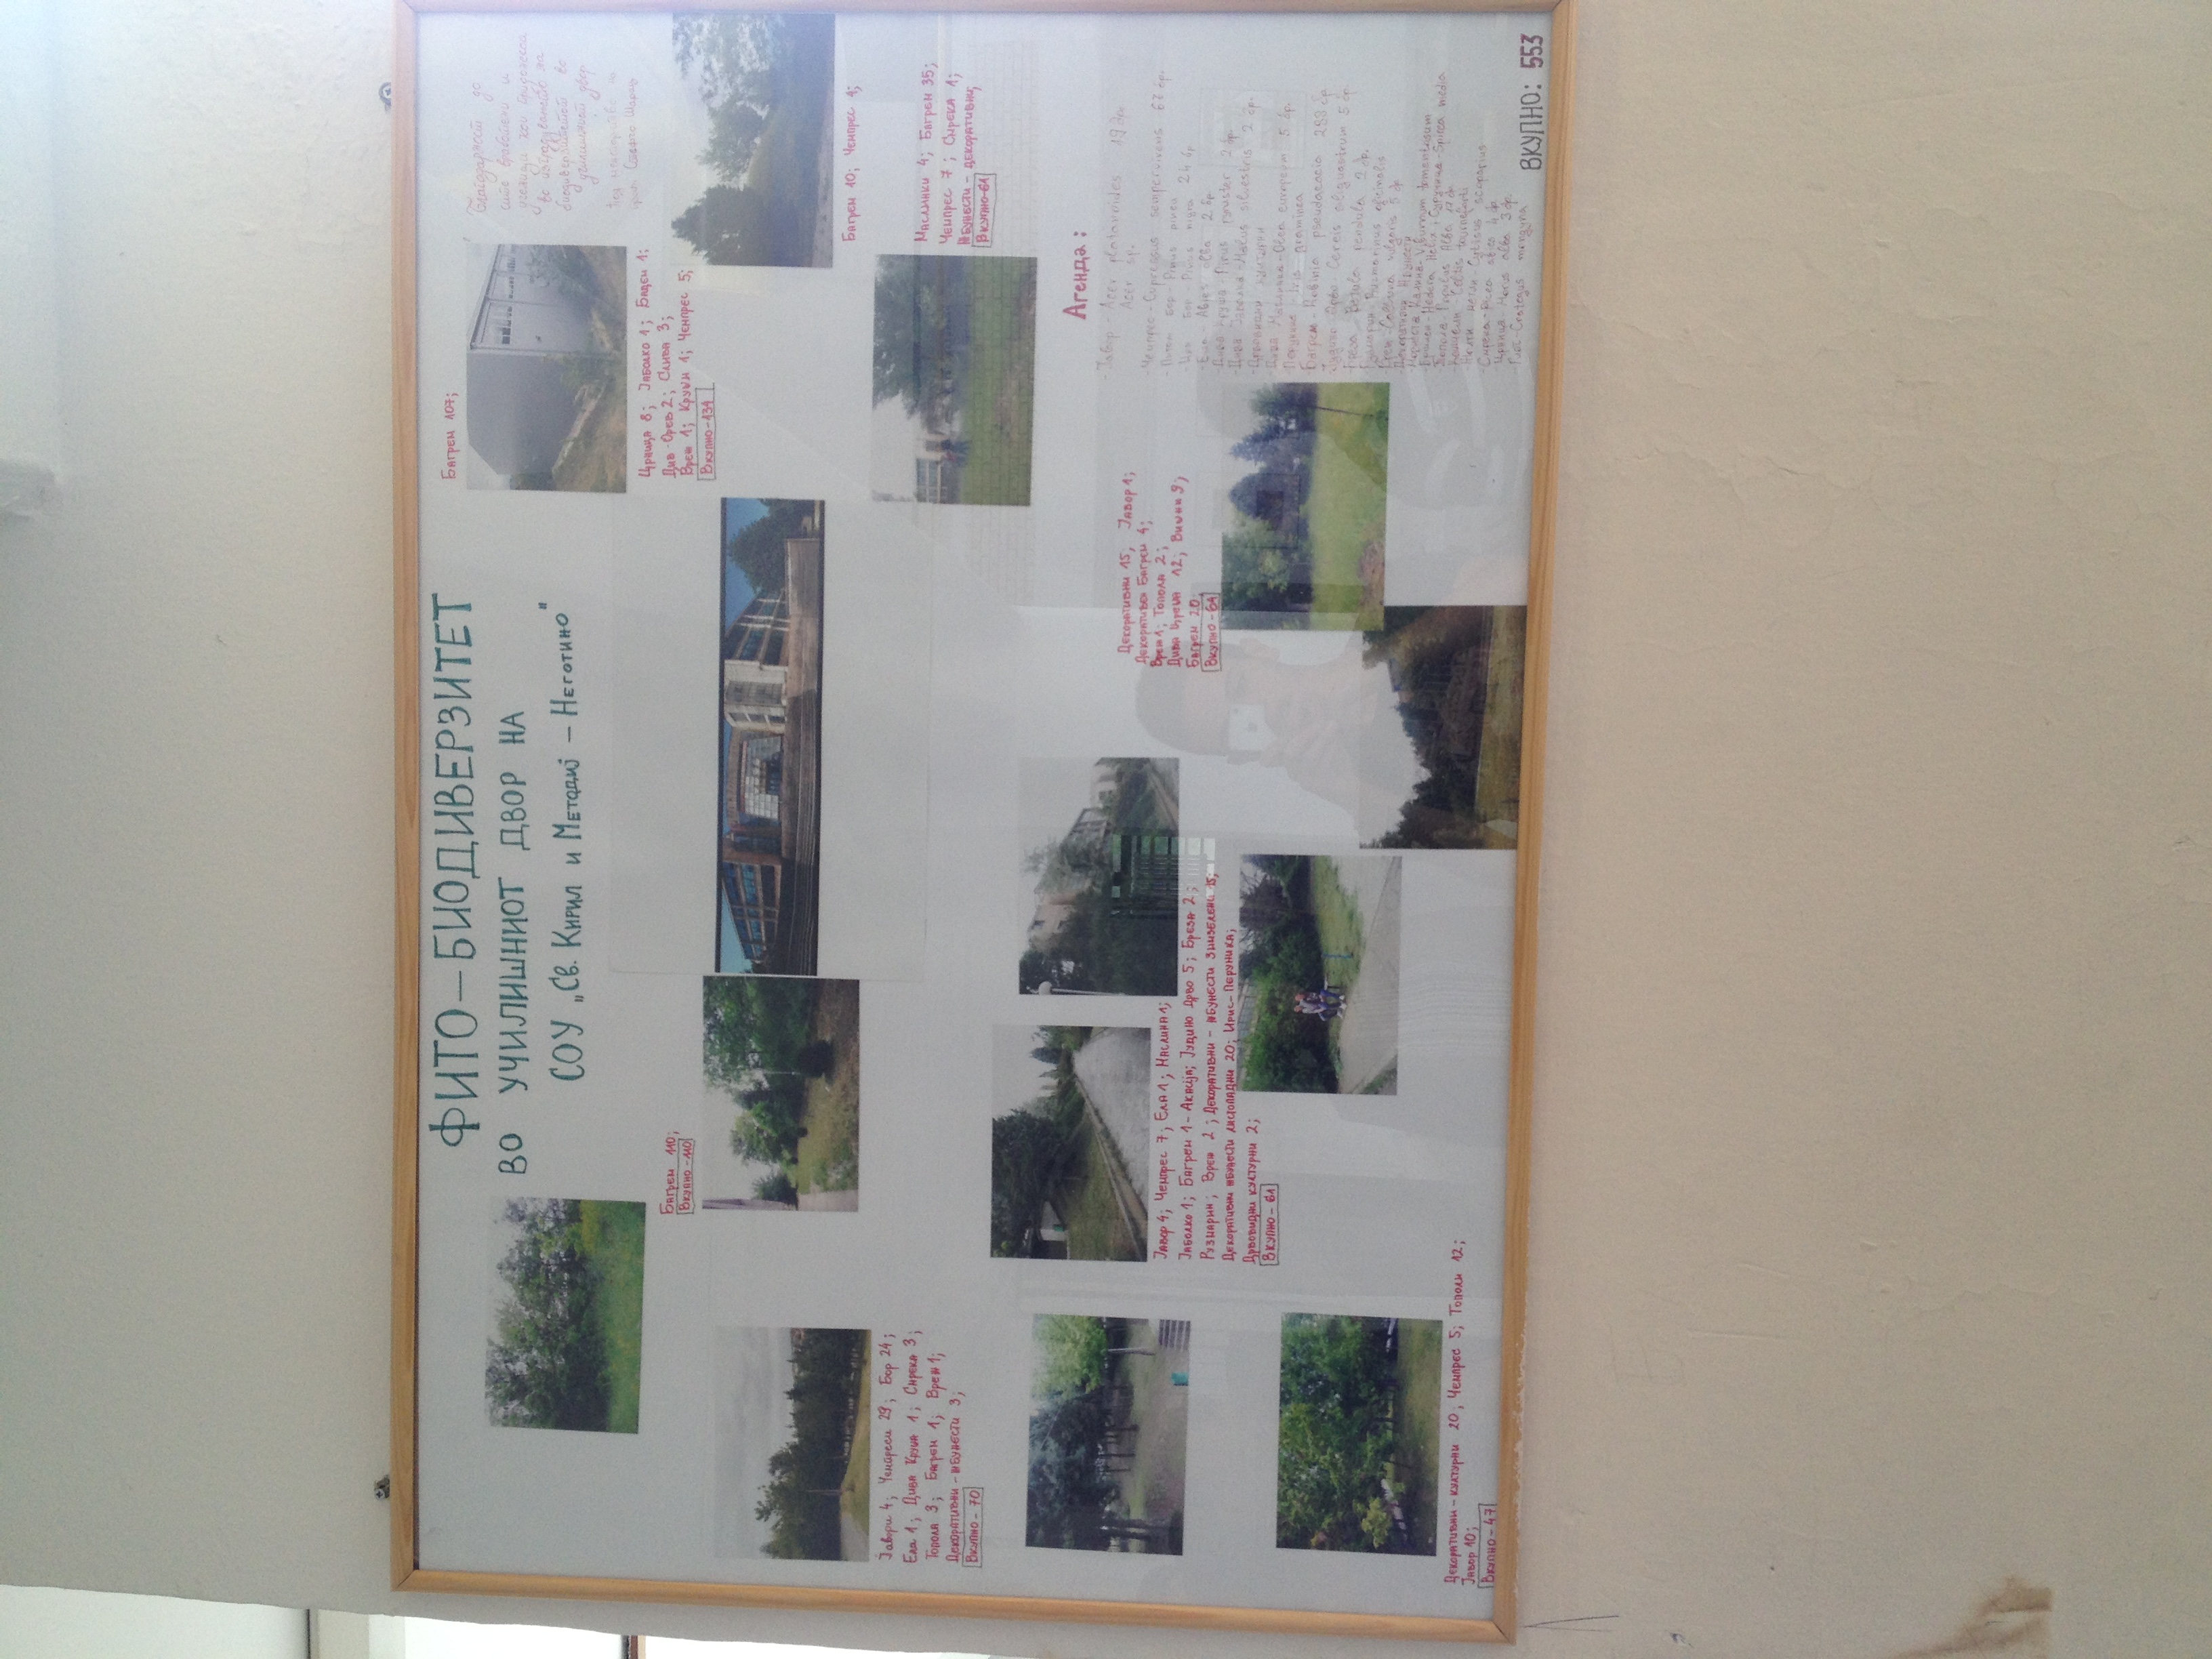 ФИТО-БИОДИВЕРЗИТЕТ
ВО УЧИЛИШНИОТ ДВОР НА
СОУ „Св. Кирил и Методиј - Неготино"
Багрем 110;
Вкупно-110
Јавори 4; Чемпреси 29; Бор 24;
Ела 1; Дива Круша 1; Смрека 3;
Топола 3; Багрем 1; Вреж 1;
Декоративни-жбунести 3;
Вкупно-70
Јавор 4; Чемпрес 7; Ела 1; Маслина 1;
Јаболко 1; Багрем 1-Акација; Јудино Дрво 5; Бреза 2;
Рузмарин; Вреж 2; Декоративни-жбунести зимзелени 15;
Декоративни жбунести листопадни 20; Ирис-Перуника;
Дрвовидни културни 2;
Вкупно-61
Декоративни-културни 20; Чемпрес 5; Тополи 12;
Јавор 10;
Вкупно-47
Декоративни 15, Јавор 1;
Декоративен Багрем 4;
Вреж 1; Топола 2;
Дива Цреша 12; Вишни 9;
Багрем 20;
Вкупно-64
Багрем 107;
Црница 8; Јаболко 1; Бадем 1;
Див-Орев 2; Слива 3;
Вреж 1; Круши 1; Чемпрес 5;
Вкупно-134
Благодарност до
сите вработени и
во изградувањето на
биодиверзитетот во
училишниот двор
Багрем 10; Чемпрес 4;
Маслинки 4; Багрем 35;
Чемпрес 7; Смрека 1;
Жбунести-декоративни;
Вкупно-61
Агенда:
-Јавор-Acer platanoides 19 бр.
Acer sp.
-Чемпрес-Cupressus sempervirens 67 бр.
Бор-Pinus pinea
-Црн Бор-Pinus nigra 24 бр
-Ела-Abies alba 2 бр
-Дива Круша-Pirus 2 бр.
-Дива Јаболка-Malus silvestris 2 бр.
-Дрвовидни културни
-Дива Маслинка-Olea europeum 5 бр.
-Перуника-Iris graminea
-Багрем-Robinia pseudacacia 288 бр.
-Јудино Дрво-Cercis siliquastrum 5 бр.
-Бреза Betula pendula 2 бр.
-Рузмарин-Ruzmarinus oficinalis
-Calluna vulgaris 5 бр
-Декоративни Жбунести
Калина-Viburnum tomentosum
-Hedera Helix; Суручица-Spirea media
-Топола-Populus Alba 17 бр.
-Celtis tournefortii
-Cytisus scoparius
-Смрека-Picea abies 4 бр.
-Црница-Morus alba 3 бр.
ВКУПНО: 553